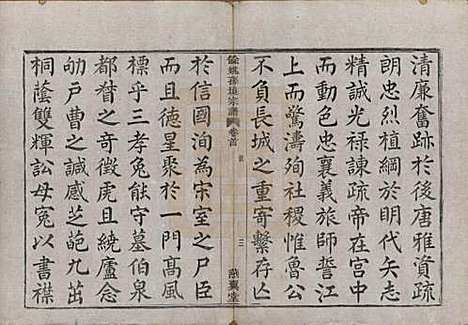 清廉奮跡於後唐雅資疏
朗忠烈植綱於明代矢志
精誠光祿諫疏帝在宮中
而動色忠襄義旅師誓江
上而驚濤殉社稷惟魯公
不負長城之重寄繫存亾
餘姚孫境宗譜
卷首
三
燕翼堂
於信國洵為宋室之尸臣
而且德星聚於一門髙風
標乎三孝兔能守墓伯泉
都督之奇徵虎且繞廬念
劬戶曹之諴感芝葩九出
桐蔭雙輝訟母冤以書襟